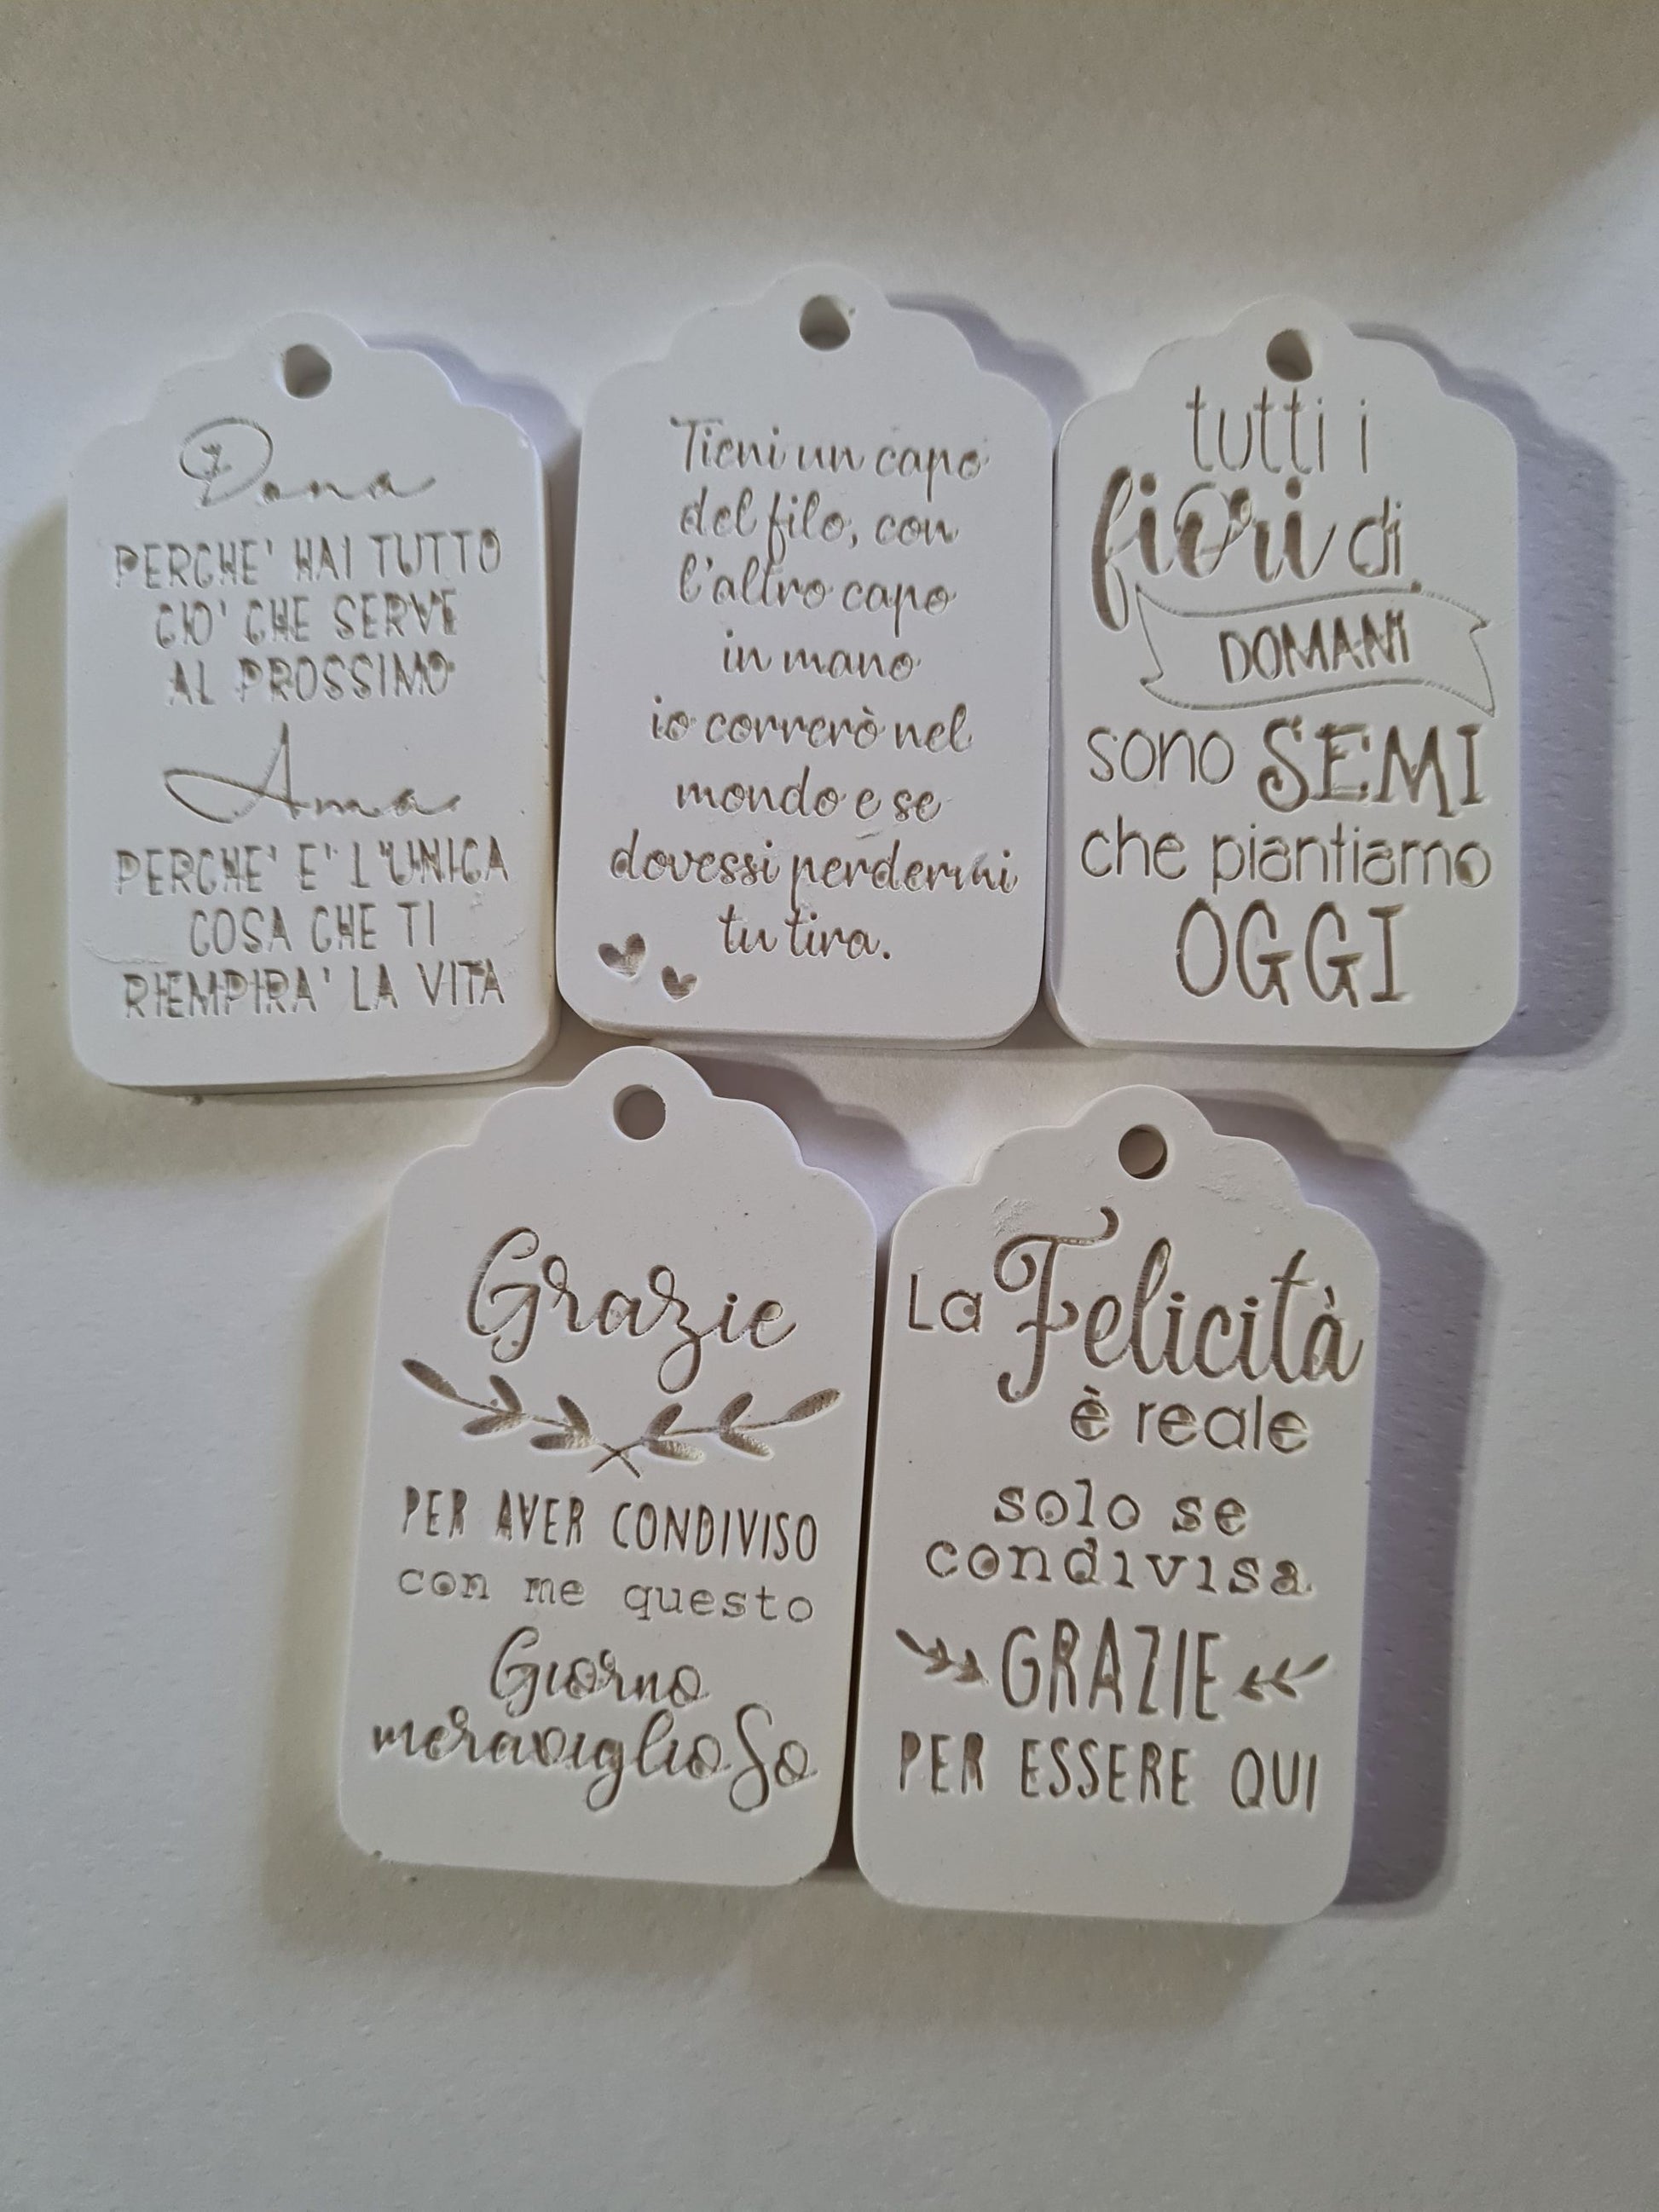 Dona
PERCHE' HAI TUTTO
CIO' CHE SERVE
AL PROSSIMO
Ama
PERCHE' E' L'UNICA
COSA CHE TI
RIEMPIRA' LA VITA
Tieni un capo
del filo, con
l'altro capo
in mano
io correrò nel
mondo e se
dovessi perdermi
tu tira.
tutti i
fiori di
DOMANI
sono SEMI
che piantiamo
OGGI
Grazie
PER AVER CONDIVISO
con me questo
Giorno
meraviglioso
La Felicità
è reale
solo se
condivisa
GRAZIE
PER ESSERE QUI